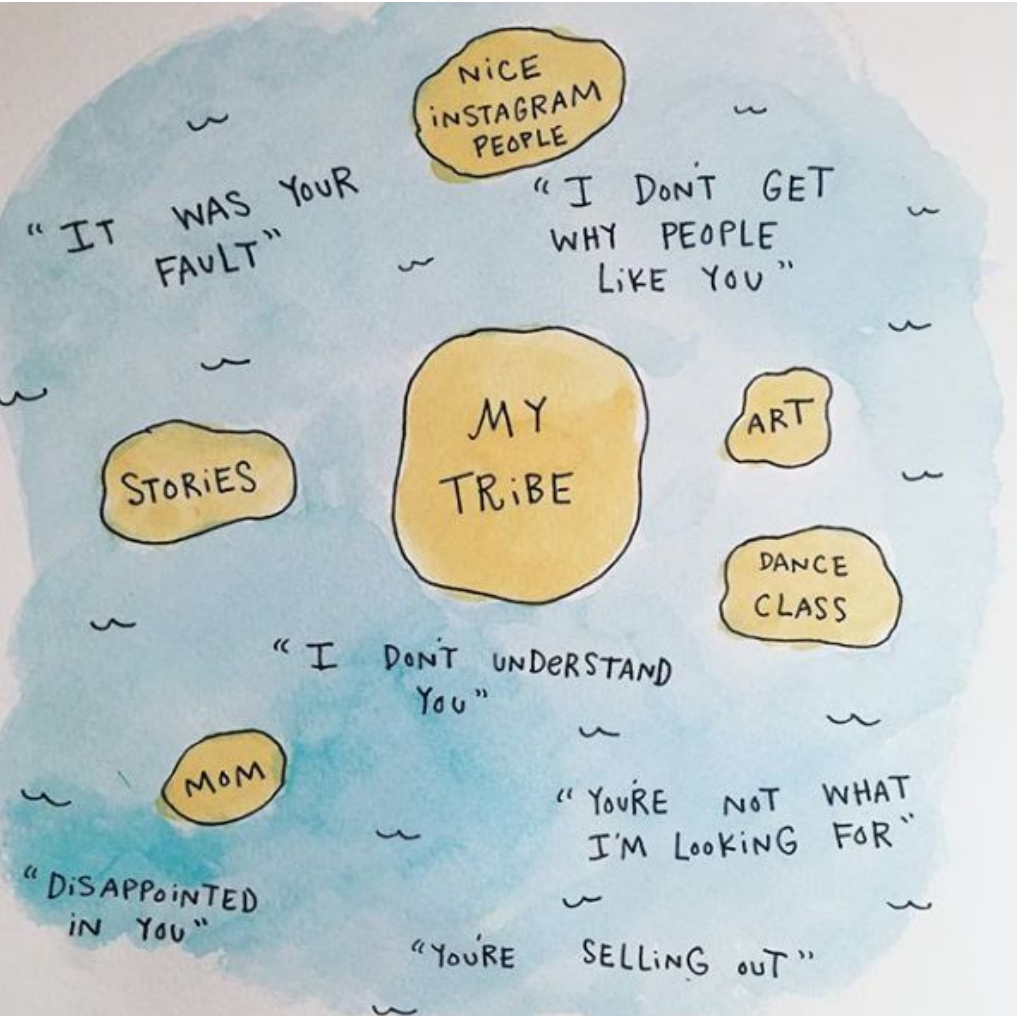 NiCE
iNSTAGRAM
PEOPLE
"IT WAS YOUR
FAULT"
"I DON'T GET
WHY PEOPLE
LiKE YOU"
MY
TRiBE
ART
STORiES
DANCE
CLASS
"I DON'T UNDeRSTAND
You"
MoM
"YOU'RE NoT WHAT
I'M LooKiNG FOR"
"DiSAPPoiNTED
iN YoU"
"YOU'RE SELLiNG ouT"